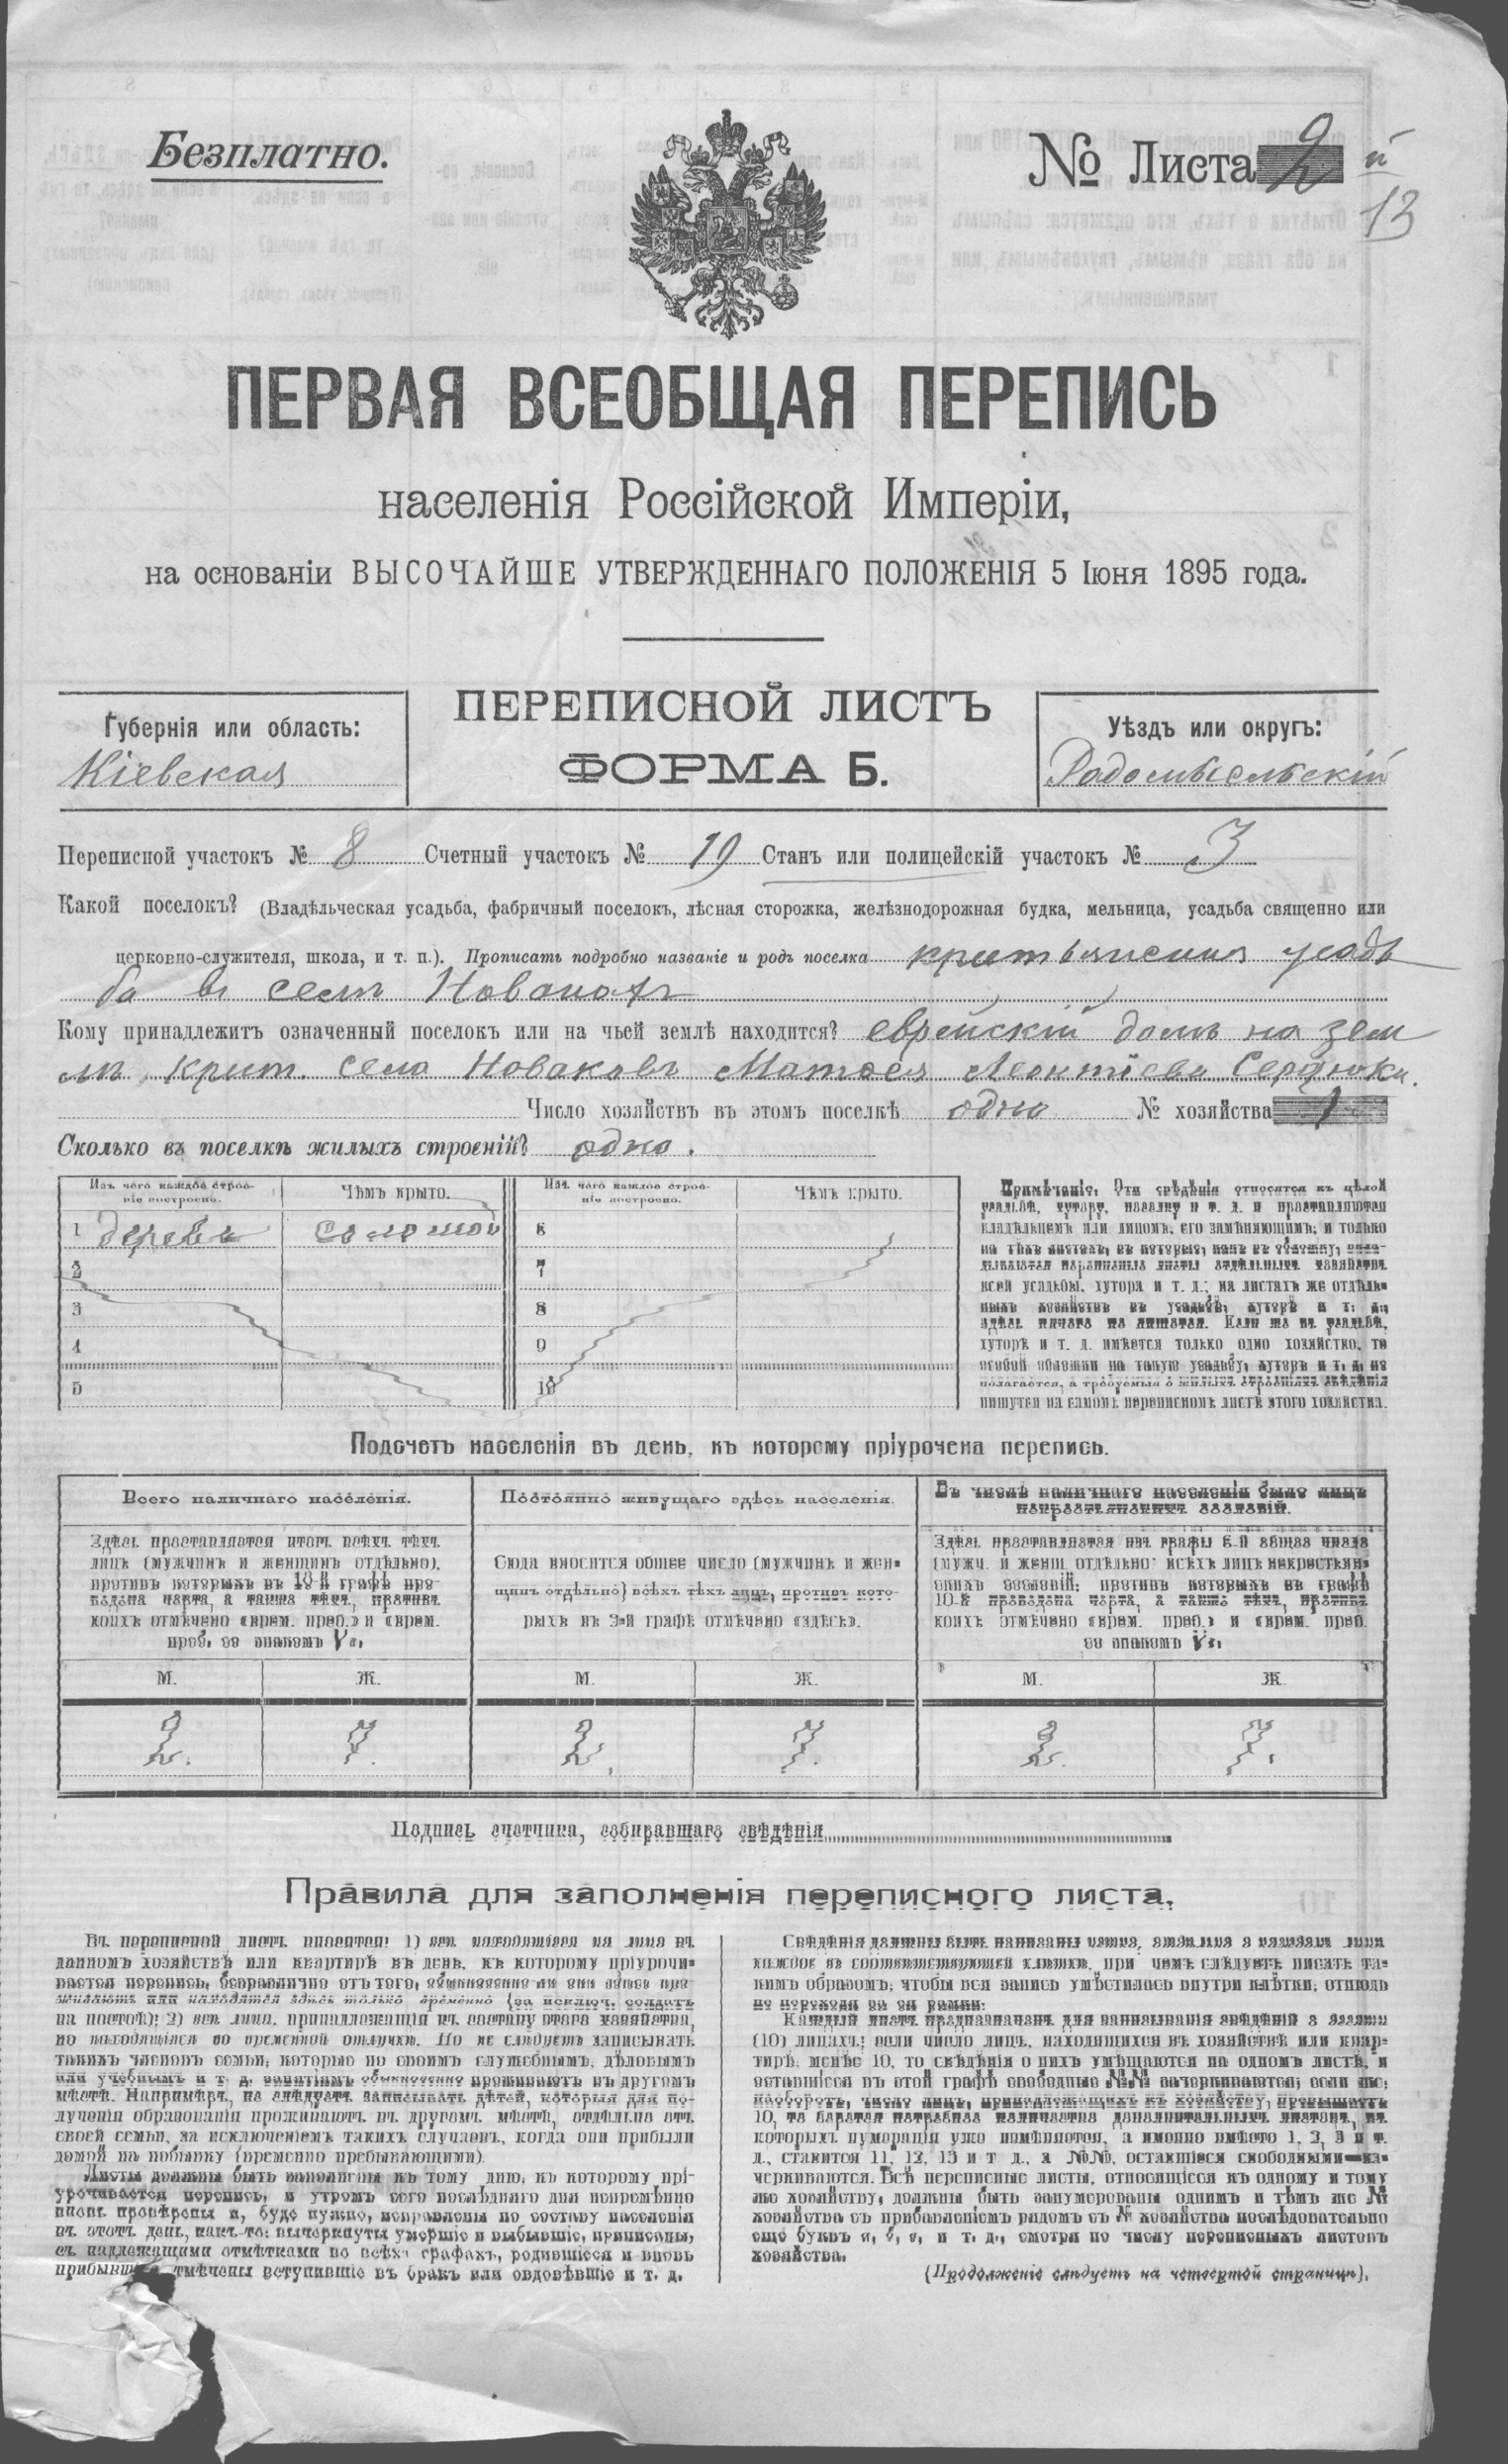 Безплатно.
№ Листа 2 й
13
ПЕРВАЯ ВСЕОБЩАЯ ПЕРЕПИСЬ
населенія Россійской Имперіи,
на основаніи ВЫСОЧАЙШЕ УТВЕРЖДЕННАГО ПОЛОЖЕНІЯ 5 Іюня 1895 года.
ПЕРЕПИСНОЙ ЛИСТЪ
ФОРМА Б.
Губернія или область:
Кіевская
Уѣздъ или округъ:
Радомысльскій
Переписной участокъ № 8 Счетный участокъ № 19 Станъ или полицейскій участокъ № 3
Какой поселокъ? (Владѣльческая усадьба, фабричный поселокъ, лѣсная сторожка, желѣзнодорожная будка, мельница, усадьба священно или
церковно-служителя, школа, и т. п.). Прописать подробно названіе и родъ поселка усадь
ба въ селѣ
Кому принадлежитъ означенный поселокъ или на чьей землѣ находится? еврейскій домъ на зем
лѣ крест. села Леонтіева Сердюка.
Число хозяйствъ въ этомъ поселкѣ одно № хозяйства 1
Сколько въ поселкѣ жилыхъ строеній? одно.
Изъ чего каждое строе-
ніе построено.
Чѣмъ крыто.
Изъ чего каждое строе-
ніе построено.
Чѣмъ крыто.
1 дерева соломой 6
2 7
3 8
4 9
5 10
Примѣчаніе. Эти свѣдѣнія относятся къ цѣлой
усадьбѣ, хутору, поселку и т. д. и проставляются
владѣльцемъ или лицомъ, его замѣняющимъ, и только
на тѣхъ листахъ, въ которые, какъ въ обложку, вкла-
дываются переписные листы отдѣльныхъ хозяйствъ
всей усадьбы, хутора и т. д.; на листахъ же отдѣль-
ныхъ хозяйствъ въ усадьбѣ, хуторѣ и т. д.,
здѣсь ничего не пишется. Если же въ усадьбѣ,
хуторѣ и т. д. имѣется только одно хозяйство, то
особой обложки на такую усадьбу, хуторъ и т. д. не
полагается, а требуемыя о жилыхъ строеніяхъ свѣдѣнія
пишутся на самомъ переписномъ листѣ этого хозяйства.
Подсчетъ населенія въ день, къ которому пріурочена перепись.
Всего наличнаго населенія.
Постоянно живущаго здѣсь населенія.
Въ числѣ наличнаго населенія было лицъ
некрестьянскихъ сословій.
Здѣсь проставляются итоги всѣхъ тѣхъ
лицъ (мужчинъ и женщинъ отдѣльно),
противъ которыхъ въ 10-й графѣ про-
ведена черта, а также тѣхъ, противъ
коихъ отмѣчено «врем. преб.» и «врем.
преб. со знакомъ V».
Сюда вносится общее число (мужчинъ и жен-
щинъ отдѣльно) всѣхъ тѣхъ лицъ, противъ кото-
рыхъ въ 9-й графѣ отмѣчено «здѣсь».
Здѣсь проставляется изъ графы 6-й общая число
(мужч. и женщ. отдѣльно) всѣхъ лицъ некрестьян-
скихъ сословій, противъ которыхъ въ графѣ
10-й проведена черта, а также тѣхъ, противъ
коихъ отмѣчено «врем. преб.» и «врем. преб.
со знакомъ V».
М. Ж. М. Ж. М. Ж.
2. 7. 2. 7. 2. 7.
Подпись счетчика, собиравшаго свѣдѣнія
Правила для заполненія переписного листа.
Въ переписной листъ вносятся: 1) всѣ находящіеся на лицо въ
данномъ хозяйствѣ или квартирѣ въ день, къ которому пріурочи-
вается перепись, безразлично отъ того, обыкновенно ли они здѣсь про-
живаютъ или находятся здѣсь только временно (за исключ. солдатъ
на постоѣ); 2) всѣ лица, принадлежащія къ составу этого хозяйства,
но находящіяся во временной отлучкѣ. Но не слѣдуетъ записывать
такихъ членовъ семьи, которые по своимъ служебнымъ, дѣловымъ
или учебнымъ и т. д. занятіямъ обыкновенно проживаютъ въ другомъ
мѣстѣ. Напримѣръ, не слѣдуетъ записывать дѣтей, которыя для по-
лученія образованія проживаютъ въ другомъ мѣстѣ, отдѣльно отъ
своей семьи, за исключеніемъ такихъ случаевъ, когда они прибыли
домой на побывку (временно пребывающими).
Листы должны быть заполнены къ тому дню, къ которому прі-
урочивается перепись, и утромъ сего послѣдняго дня непремѣнно
вновь провѣрены и, буде нужно, исправлены по составу населенія
въ этотъ день, какъ-то: вычеркнуты умершіе и выбывшіе, приписаны,
съ надлежащими отмѣтками во всѣхъ графахъ, родившіеся и вновь
прибывшіе, отмѣчены вступившіе въ бракъ или овдовѣвшіе и т. д.
Свѣдѣнія должны быть написаны четко,
каждое въ соотвѣтствующей клѣткѣ, при чемъ слѣдуетъ писать та-
кимъ образомъ, чтобы вся запись умѣстилась внутри клѣтки, отнюдь
не переходя за ея рамки.
Каждый листъ предназначенъ для вписыванія свѣдѣній о десяти
(10) лицахъ; если число лицъ, находящихся въ хозяйствѣ или квар-
тирѣ, менѣе 10, то свѣдѣнія о нихъ умѣщаются на одномъ листѣ, и
оставшіеся въ этой графѣ свободные №№ зачеркиваются; если же,
наоборотъ, число лицъ, принадлежащихъ къ хозяйству, превышаетъ
10, то берется потребное количество дополнительныхъ листовъ, въ
которыхъ нумерація уже измѣняется, а именно вмѣсто 1, 2, 3 и т.
д., ставится 11, 12, 13 и т д., а №№, оставшіеся свободными—за-
черкиваются. Всѣ переписные листы, относящіеся къ одному и тому
же хозяйству, должны быть занумерованы однимъ и тѣмъ же №
хозяйства съ прибавленіемъ рядомъ съ № хозяйства послѣдовательно
еще буквъ а, б, в, и т. д., смотря по числу переписныхъ листовъ
хозяйства.
(Продолженіе слѣдуетъ на четвертой страницѣ).